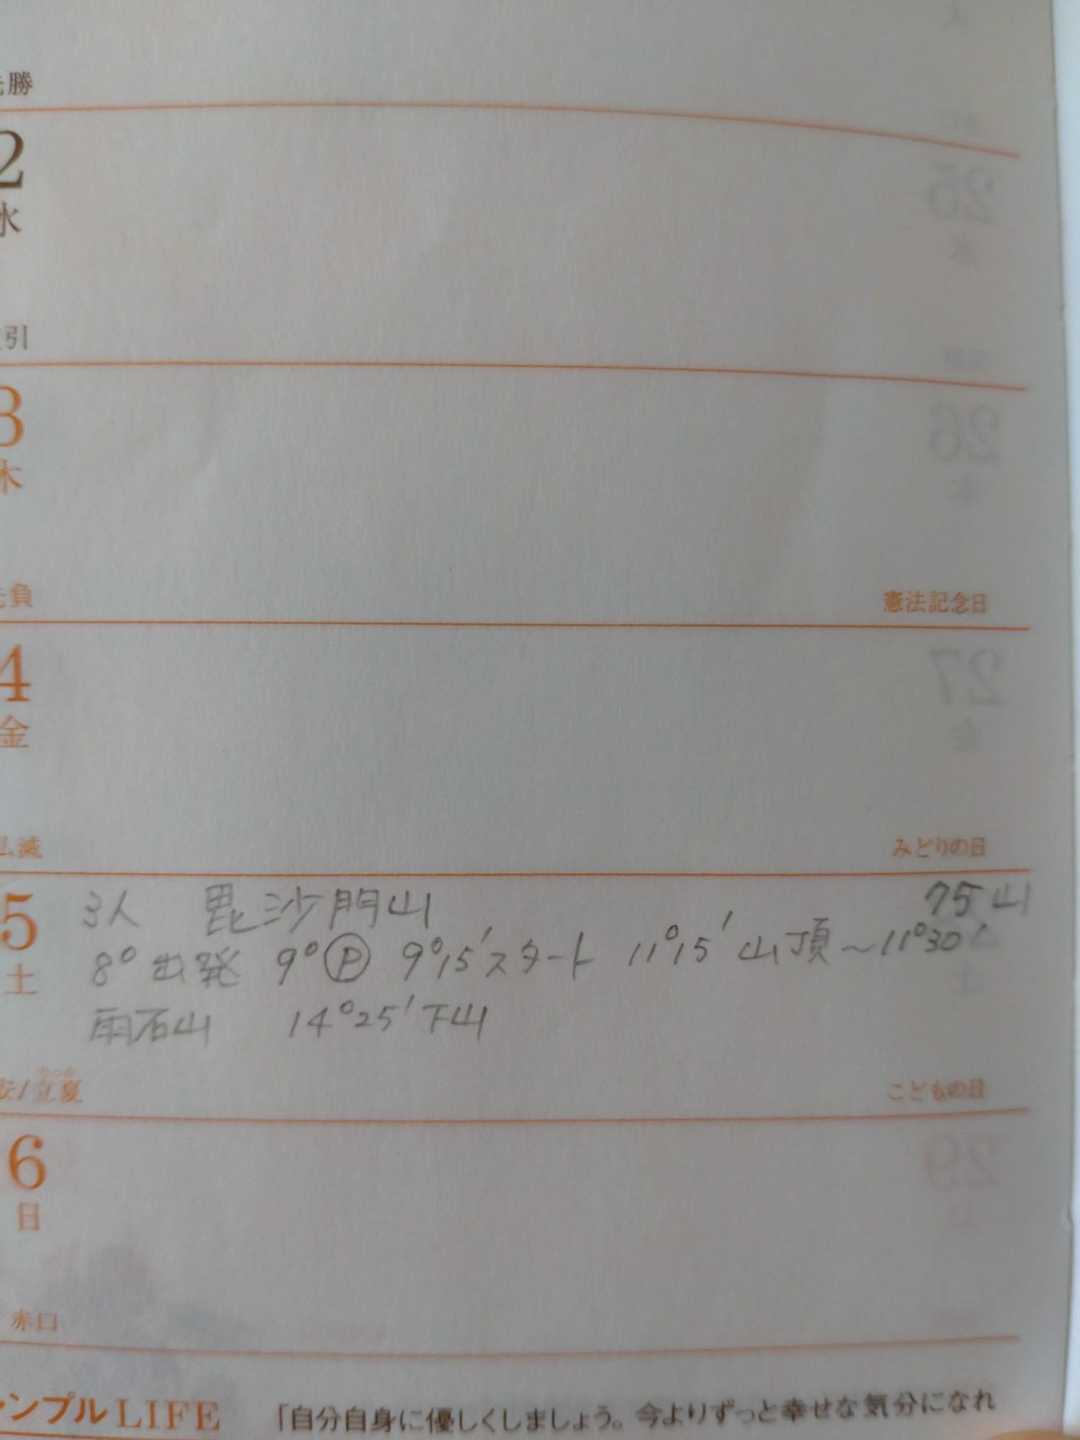 勝
2
水
引
3
木
負
憲法記念日
4
金
滅
みどりの日
5
土
3人 毘沙門山 75山
8°出発 9°Ⓟ 9°15′スタート 11°15′山頂～11°30′
雨石山 14°25′下山
/立夏
こどもの日
6
日
赤口
ンプルLIFE
「自分自身に優しくしましょう。今よりずっと幸せな気分になれ